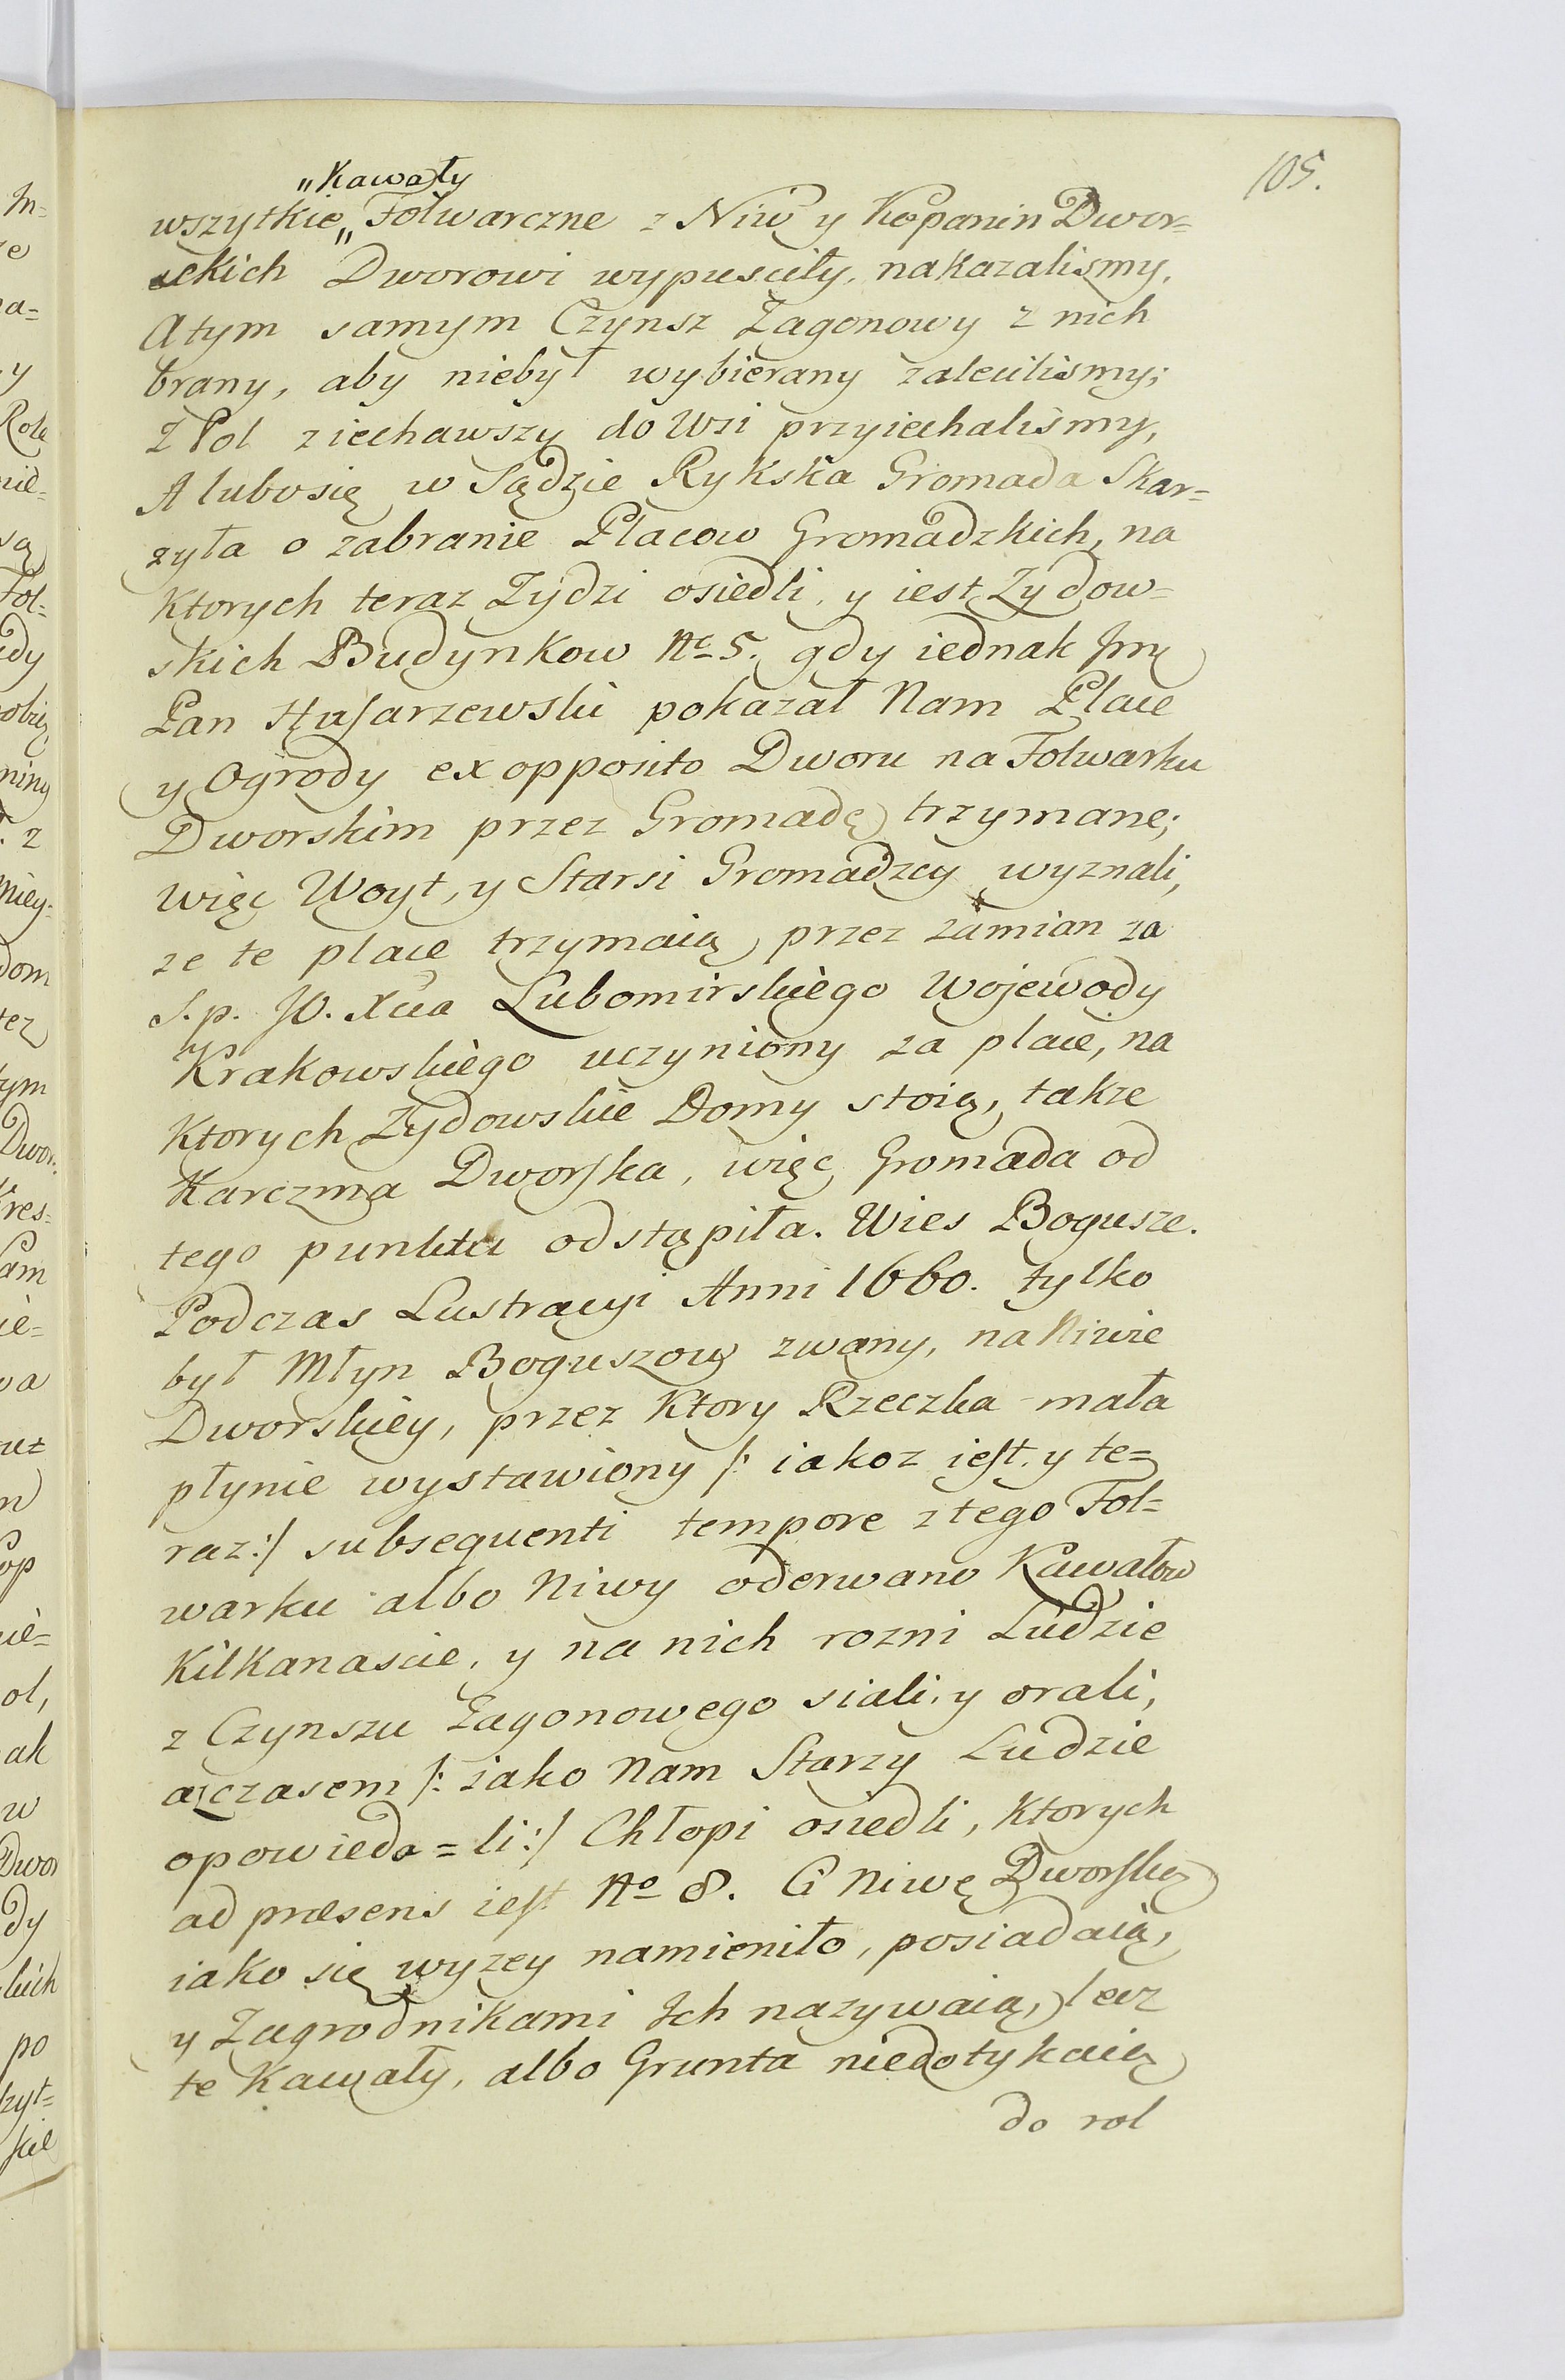 105.
„Kawały
wszytkie„ Folwarczne z Niw y Kopanin Dwor=
ckich Dworowi wypusciły, nakazalismy,
Atym samym Czynsz Zagonowy z nich
brany, aby niebył wybierany zalecilismy;
Z Pol ziechawszy do Wsi przyiechalismy,
A lubosię w Sądzie Rykska Gromada Skar=
zyła o zabranie Placow Gromadzkich, na
Ktorych teraz Zydzi osiedli, y iest Zydow=
skich Budynkow No 5. gdy iednak Jmć
Pan Husarzewski pokazał Nam Place
y Ogrody ex opposito Dworu na Folwarku
Dworskim przez Gromadę trzymane;
więc Woyt, y Starsi Gromadzcy wyznali,
ze te place trzymaią przez zamian za
s.p. JO. Xcia Lubomirskiego Wojewody
Krakowskiego uczyniony za place, na
Ktorych Zydowskie Domy stoią, takze
Karczma Dworska, więc Gromada od
tego punktu odstąpiła. Wies Bogusze.
Podczas Lustracyi Anni 1660. tylko
był Młyn Boguszow zwany, na Niwie
Dworskiey, przez Ktory Rzeczka mała
płynie wystawiony /: iakoz iest y te=
raz:/ subsequenti tempore z tego Fol=
warku albo Niwy oderwano Kawałow
Kilkanascie, y na nich rozni Ludzie
z Czynszu Zagonowego siali, y orali,
a czasem /: iako Nam Starzy Ludzie
opowieda=li:/ Chłopi osiedli, Ktorych
ad præsens iest No 8. Ci Niwę Dworską
iako się wyzey namieniło, posiadaią,
y Zagrodnikami Ich nazywaią, lecz
te Kawały, albo Grunta niedotykaią
do rol